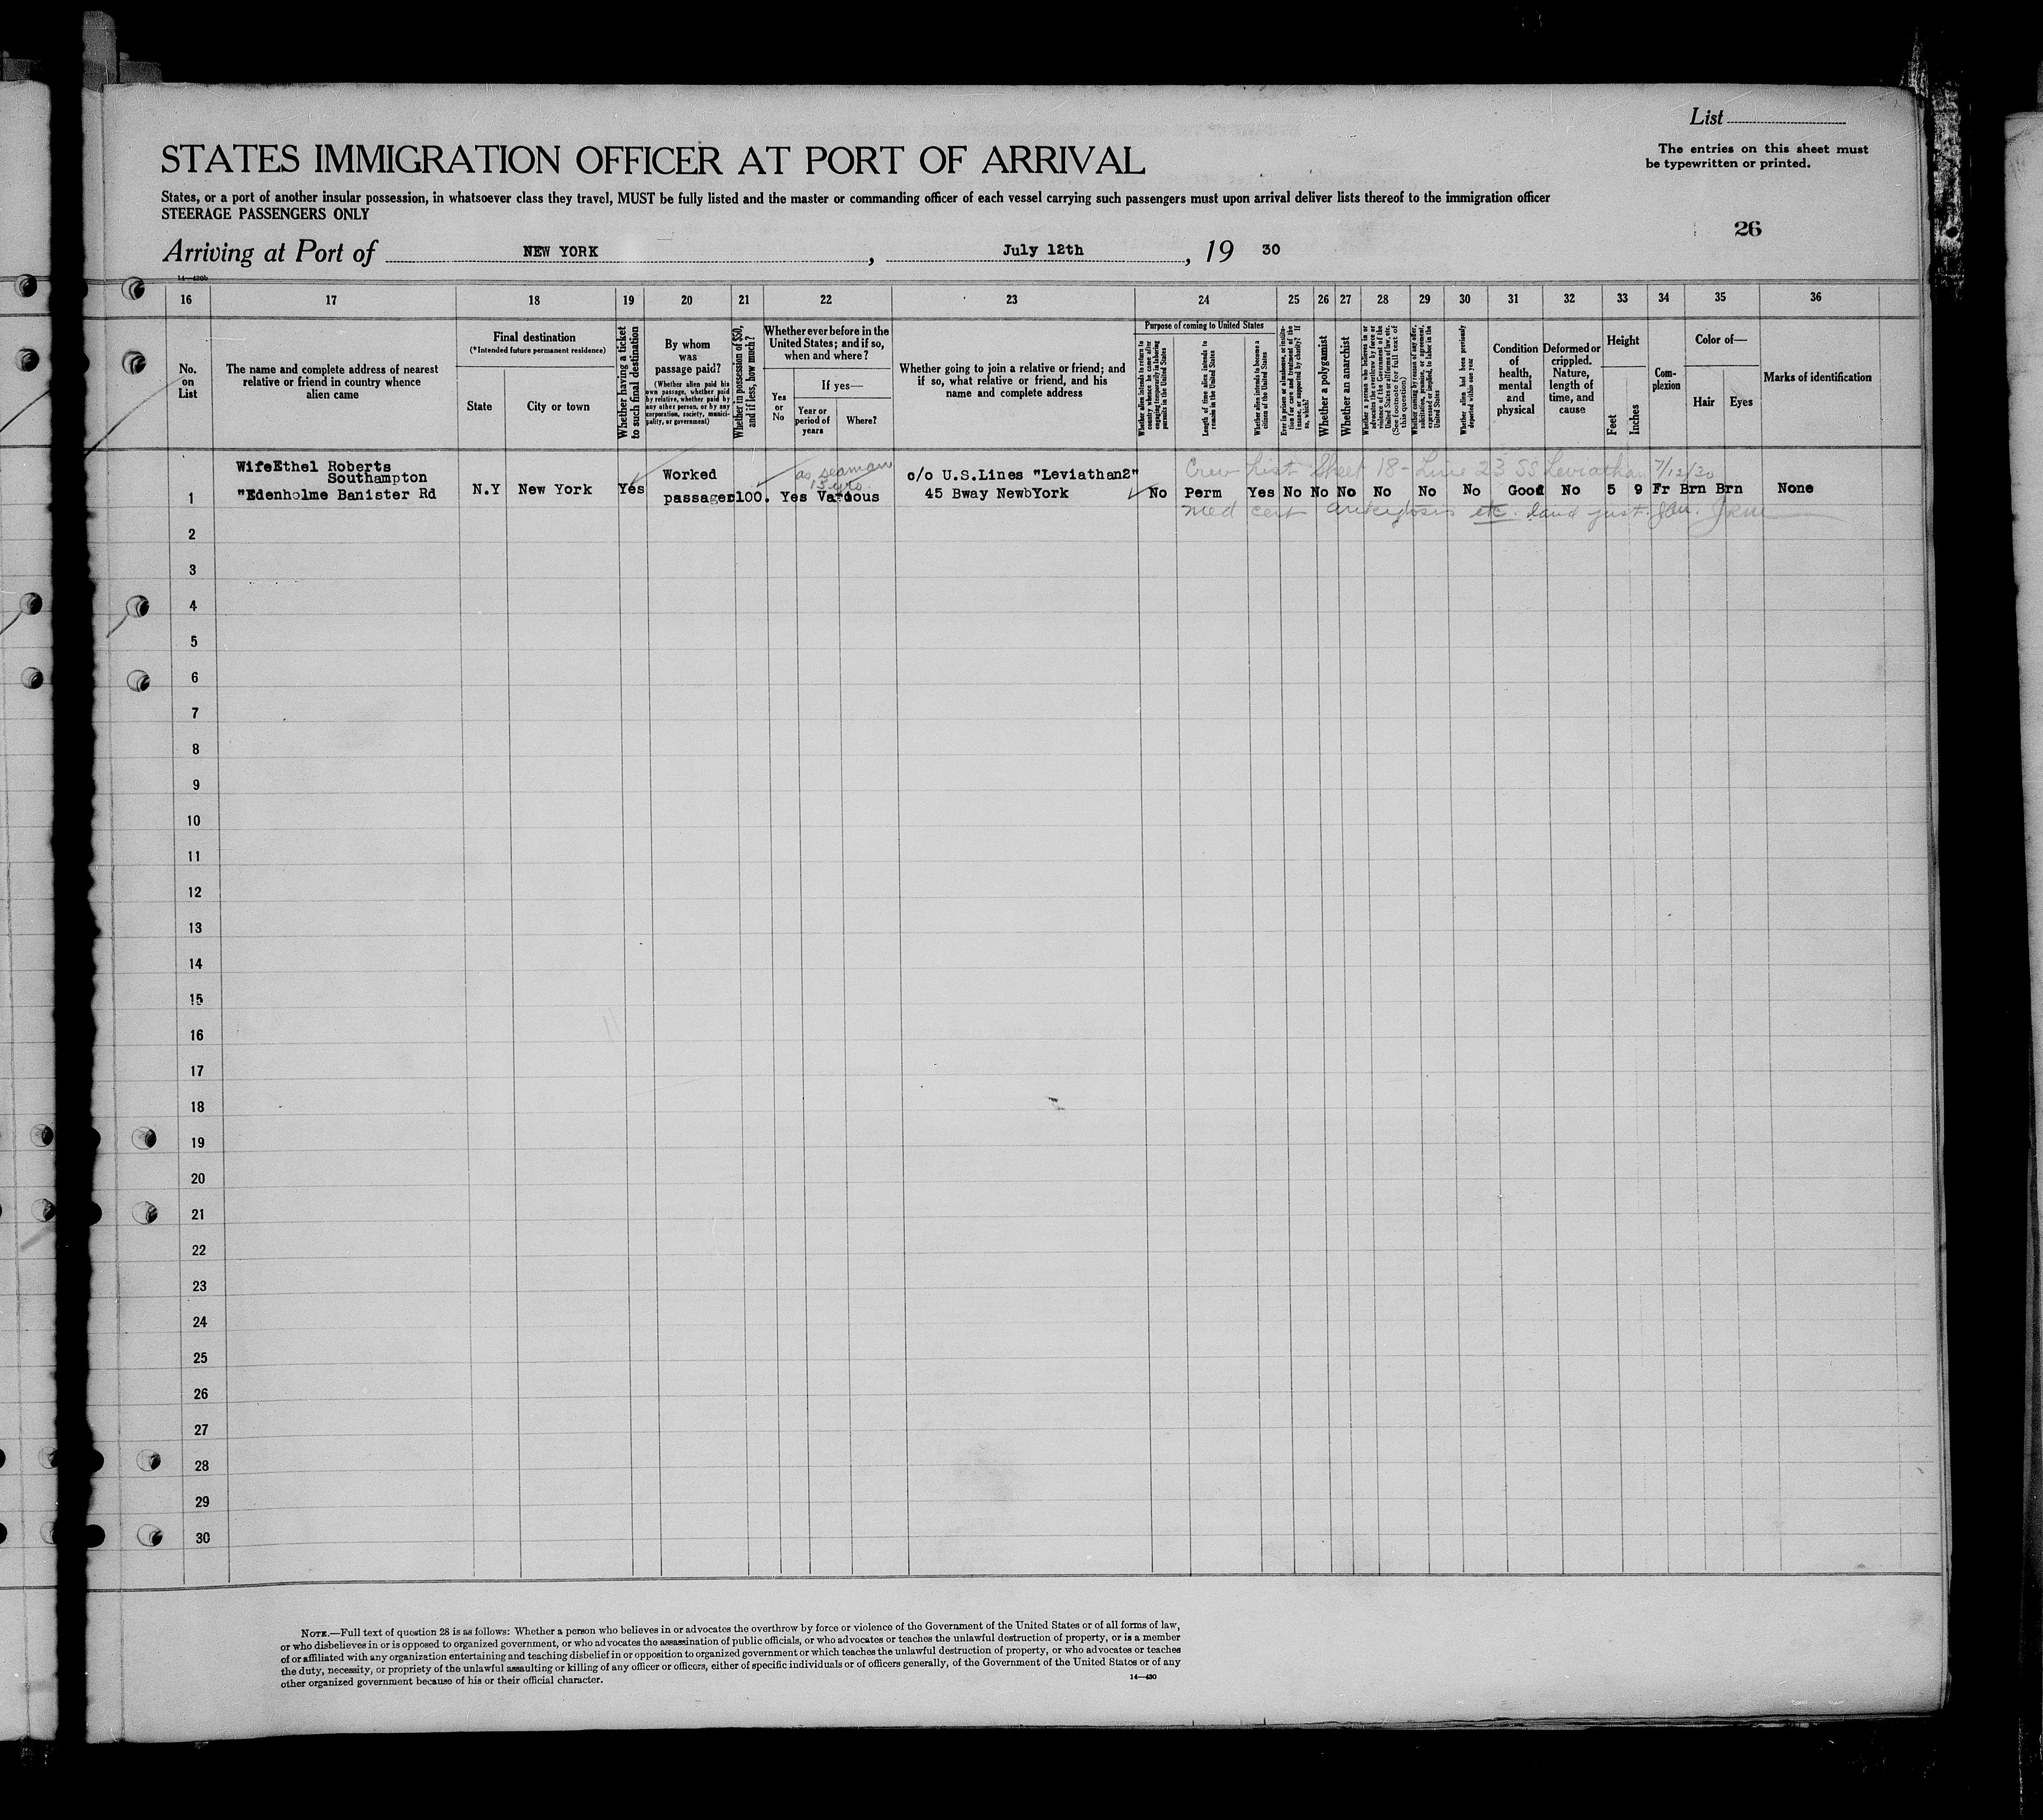 List
The entries on this sheet must
be typewritten or printed.
STATES IMMIGRATION OFFICER AT PORT OF ARRIVAL
States, or a port of another insular possession, in whatsoever class they travel, MUST be fully listed and the master or commanding officer of each vessel carrying such passengers must upon arrival deliver lists thereof to the immigration officer
STEERAGE PASSENGERS ONLY
26
Arriving at Port of NEW YORK, July 12th, 19 30
14—430b
16 17 18 19 20 21 22 23 24 25 26 27 28 29 30 31 32 33 34 35 36
No.
on
List
The name and complete address of nearest
relative or friend in country whence
alien came
Final destination
(*Intended future permanent residence)
State
City or town
Whether having a ticket
to such final destination
By whom
was
passage paid?
(Whether alien paid his
own passage, whether paid
by relative, whether paid by
any other person, or by any
corporation, society, munici-
pality, or government)
Whether in possession of $50,
and if less, how much?
Whether ever before in the
United States; and if so,
when and where?
Yes
or
No
If yes—
Year or
period of
years
Where?
Whether going to join a relative or friend; and
if so, what relative or friend, and his
name and complete address
Purpose of coming to United States
Whether alien intends to return to
country whence he came after
engaging temporarily in laboring
pursuits in the United States
Length of time alien intends to
remain in the United States
Whether alien intends to become a
citizen of the United States
Ever in prison or almshouse, or institu-
tion for care and treatment of the
insane, or supported by charity? If
so, which?
Whether a polygamist
Whether an anarchist
Whether a person who believes in or
advocates the overthrow by force or
violence of the Government of the
United States or all forms of law, etc.
(See footnote for full text of
this question)
Whether coming by reason of any offer,
solicitation, promise, or agreement,
expressed or implied, to labor in the
United States
Whether alien had been previously
deported within one year
Condition
of
health,
mental
and
physical
Deformed or
crippled.
Nature,
length of
time, and
cause
Height
Feet
Inches
Com-
plexion
Color of—
Hair
Eyes
Marks of identification
WifeEthel Roberts
Southampton
"Edenholme Banister Rd
1 N.Y New York Yes
Worked
passage 100.
as seaman
13 yrs.
Yes Various
c/o U.S.Lines "Leviathan2"
45 Bway NewbYork
Crew List Sheet 18 - Line 23 SS Leviathan 7/12/30
No Perm Yes No No No No No No Good No 5 9 Fr Brn Brn None
med cert etc. land
2
3
4
5
6
7
8
9
10
11
12
13
14
15
16
17
18
19
20
21
22
23
24
25
26
27
28
29
30
NOTE.—Full text of question 28 is as follows: Whether a person who believes in or advocates the overthrow by force or violence of the Government of the United States or of all forms of law,
or who disbelieves in or is opposed to organized government, or who advocates the assassination of public officials, or who advocates or teaches the unlawful destruction of property, or is a member
of or affiliated with any organization entertaining and teaching disbelief in or opposition to organized government or which teaches the unlawful destruction of property, or who advocates or teaches
the duty, necessity, or propriety of the unlawful assaulting or killing of any officer or officers, either of specific individuals or of officers generally, of the Government of the United States or of any
other organized government because of his or their official character.
14—430